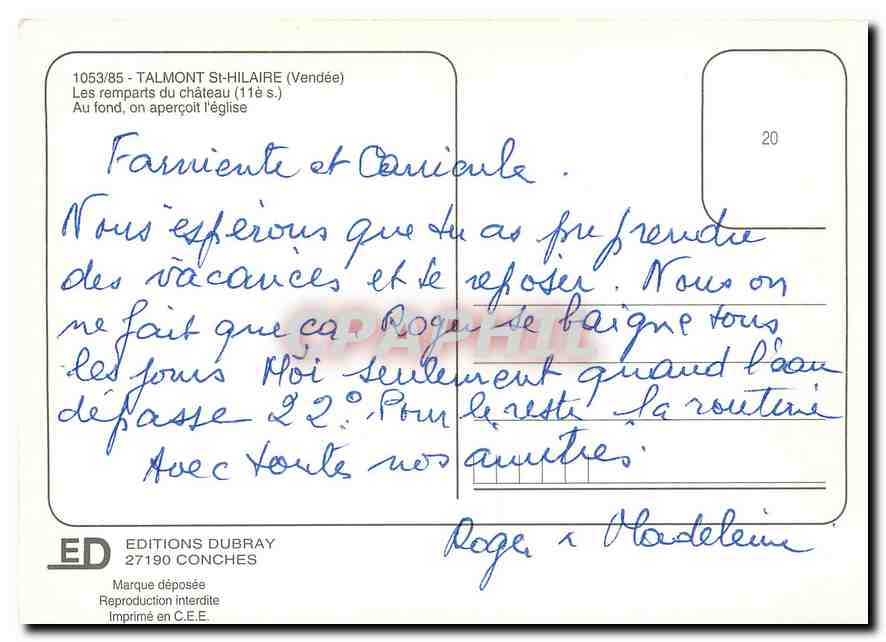 1053/85 - TALMONT St-HILAIRE (Vendée)
Les remparts du château (11è s.)
Au fond, on aperçoit l'église
20
Farniente et Canicule.
Nous espérons que tu as pu prendre
des vacances et te reposer. Nous on
ne fait que ça. Roger se baigne tous
les jours Moi seulement quand l'eau
dépasse 22°. Pour le reste la routine
Avec toutes nos amitiés.
Roger & Madeleine
CPAPHIL
ED
EDITIONS DUBRAY
27190 CONCHES
Marque déposée
Reproduction interdite
Imprimé en C.E.E.